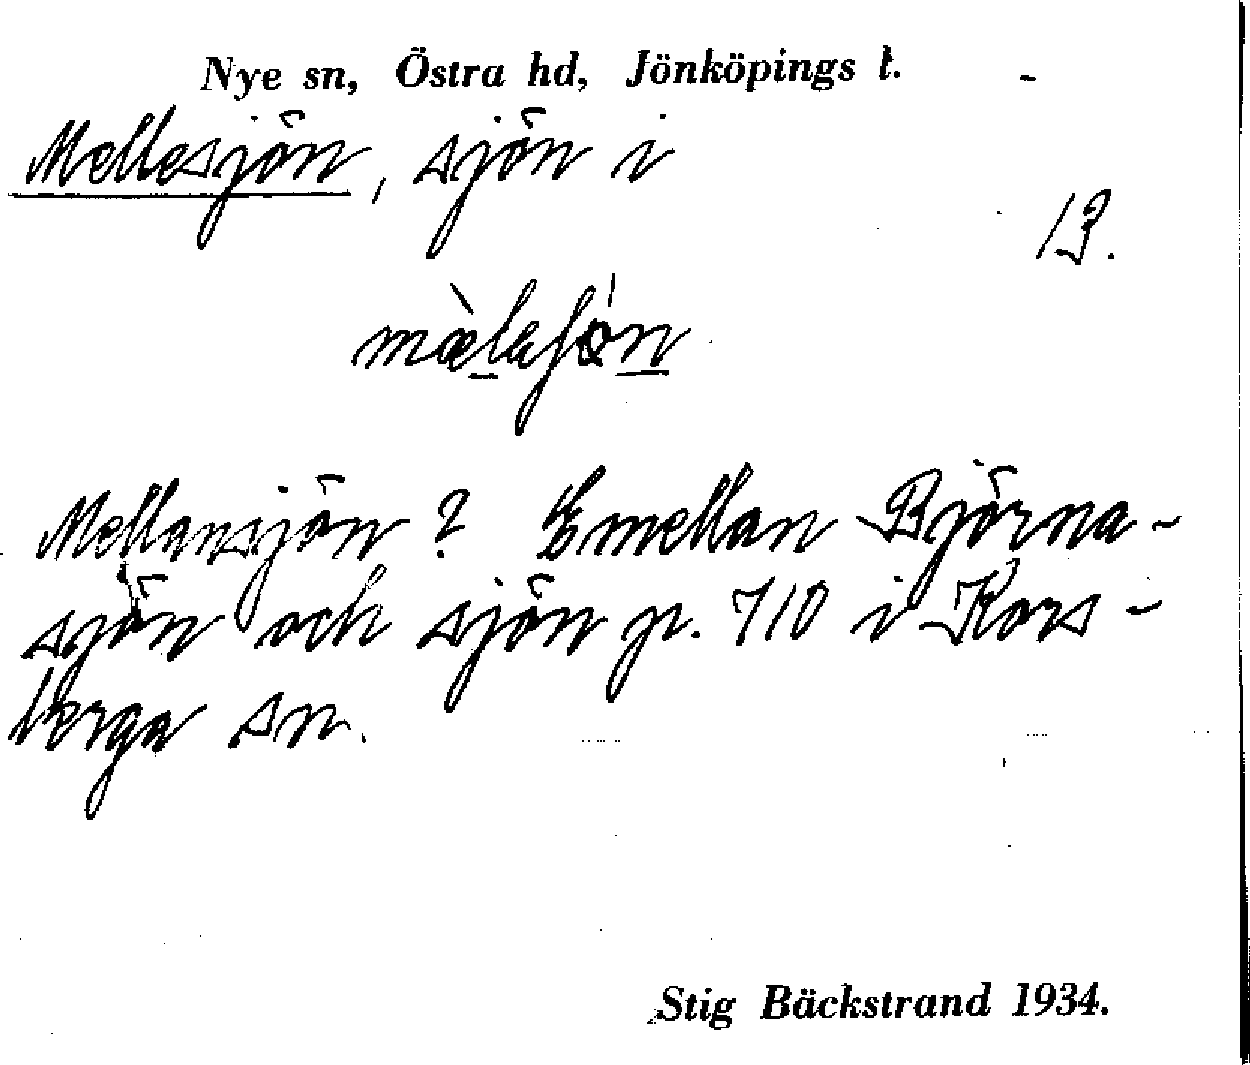 Nye sn, Östra hd, Jönköpings l.
Mellesjön, sjön i
13.
Mellansjön? Emellan Björna-
sjön och sjön p. 710 i Kors-
berga sn.
Stig Bäckstrand 1934.